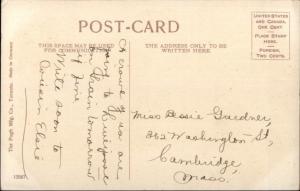 POST-CARD
THIS SPACE MAY BE USED
FOR COMMUNICATION.
THE ADDRESS ONLY TO BE
WRITTEN HERE.
UNITED STATES
AND CANADA,
ONE CENT.
PLACE STAMP
HERE.
FOREIGN,
TWO CENTS.
A crowd of us are
going to
on train tomorrow
if fine
Write soon to
Cousin Elsie
Miss Bessie Gardner,
Washington St,
Cambridge,
Mass.
The Pugh Mfg. Co., Toronto. Made in Germany.